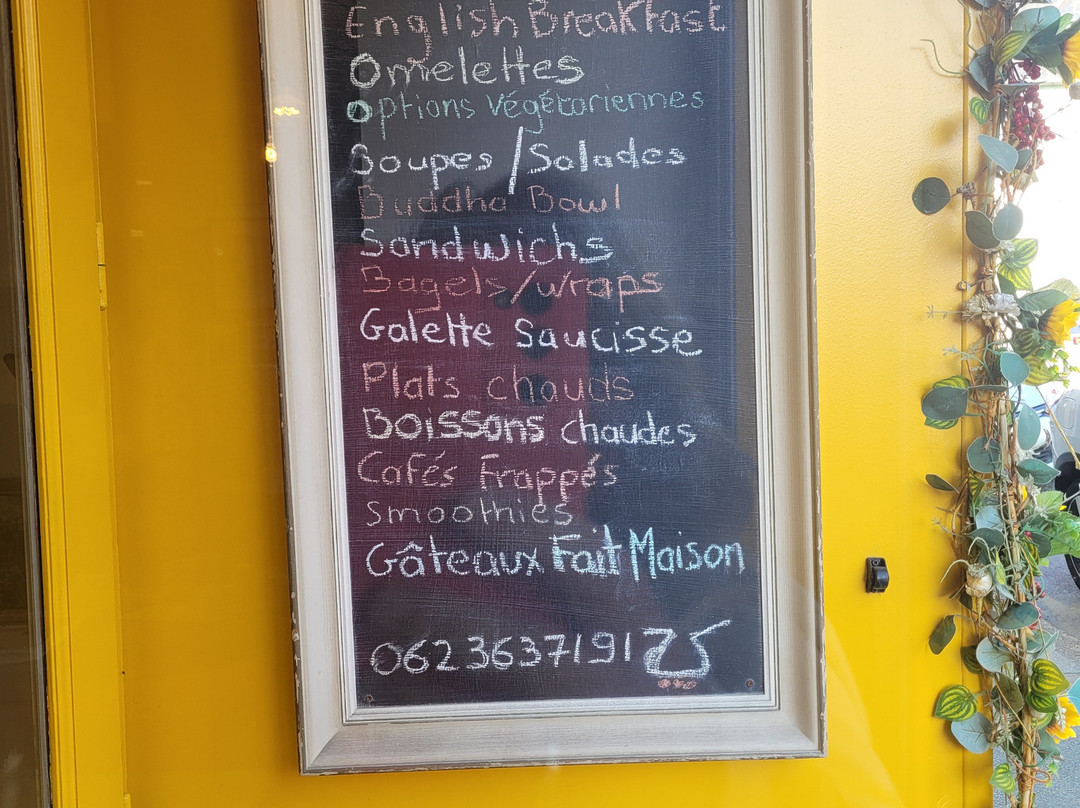 English Breakfast
Omelettes
options végétariennes
Soupes / Salades
Buddha Bowl
Sandwichs
Bagels/wraps
Galette Saucisse
Plats chauds
Boissons chaudes
Cafés Frappés
Smoothies
Gâteaux Fait Maison
0623637191